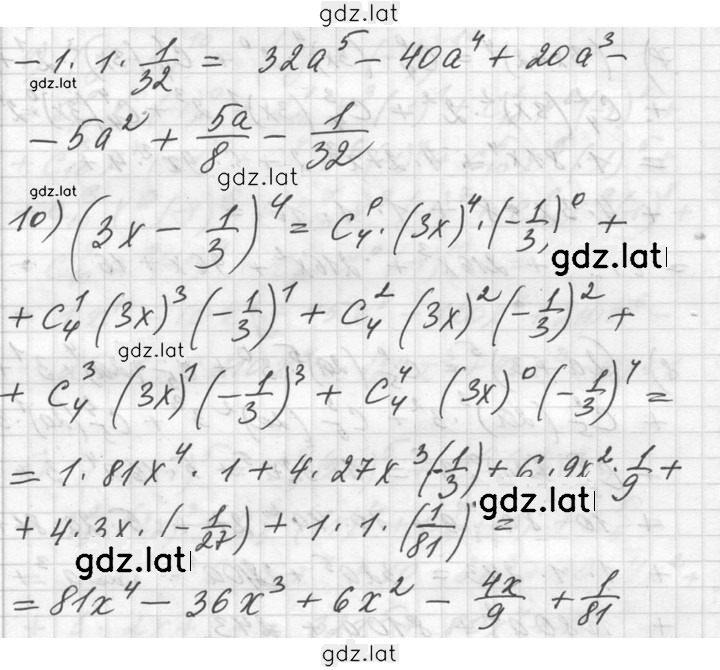 gdz.lat
- 1 · 1 · 1/32 = 32a⁵ - 40a⁴ + 20a³ -
gdz.lat
- 5a² + 5a/8 - 1/32
gdz.lat
gdz.lat
10) (3x - 1/3)⁴ = C₄⁰ · (3x)⁴ · (-1/3)⁰ +
gdz.lat
+ C₄¹ (3x)³ (-1/3)¹ + C₄² (3x)² (-1/3)² +
gdz.lat
+ C₄³ (3x)¹ (-1/3)³ + C₄⁴ (3x)⁰ (-1/3)⁴ =
= 1 · 81x⁴ · 1 + 4 · 27x³ (-1/3) + 6 · 9x² · 1/9 +
gdz.lat
+ 4 · 3x · (-1/27) + 1 · 1 · (1/81) =
gdz.lat
= 81x⁴ - 36x³ + 6x² - 4x/9 + 1/81
gdz.lat